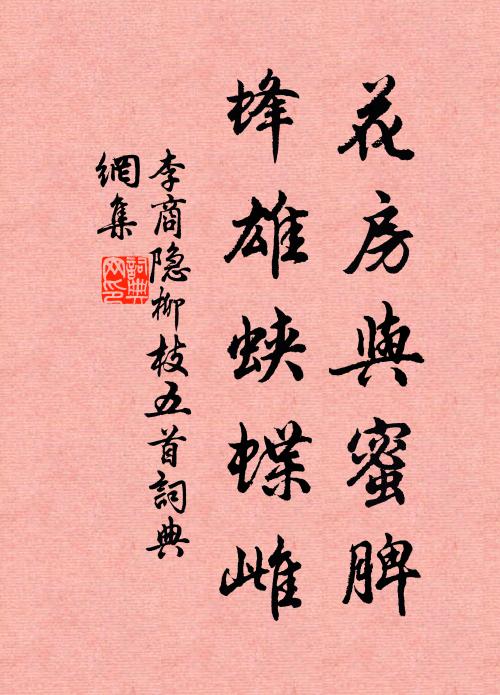 花房與蜜脾
蜂雄蛺蝶雌
李商隐柳枝五首詞典
網集
詞典
网印